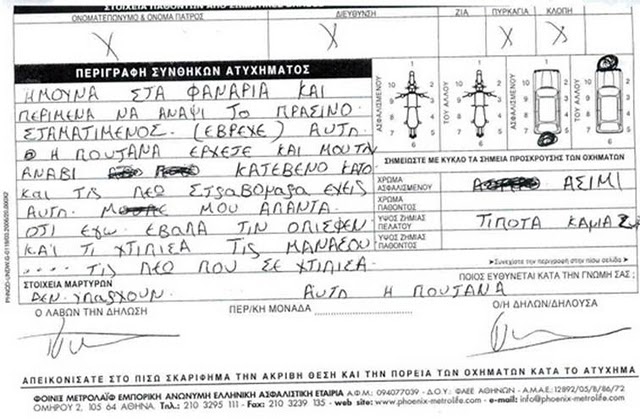 ΣΤΟΙΧΕΙΑ ΠΑΘΟΝΤΩΝ ΑΠΟ ΣΩΜΑΤΙΚΕΣ ΒΛΑΒΕΣ
ΟΝΟΜΑΤΕΠΩΝΥΜΟ & ΟΝΟΜΑ ΠΑΤΡΟΣ ΔΙΕΥΘΥΝΣΗ ΖΙΑ ΠΥΡΚΑΓΙΑ ΚΛΟΠΗ
X X X X
ΠΕΡΙΓΡΑΦΗ ΣΥΝΘΗΚΩΝ ΑΤΥΧΗΜΑΤΟΣ
ΗΜΟΥΝΑ ΣΤΑ ΦΑΝΑΡΙΑ ΚΑΙ
ΠΕΡΙΜΕΝΑ ΝΑ ΑΝΑΨΙ ΤΟ ΠΡΑΣΙΝΟ
ΣΤΑΜΑΤΙΜΕΝΟΣ. (ΕΒΡΕΧΕ) ΑΥΤΗ
Η ΠΟΥΤΑΝΑ ΕΡΧΕΤΕ ΚΑΙ ΜΟΥ ΤΗΝ
ΑΝΑΒΙ ΚΑΤΕΒΕΝΟ ΚΑΤΟ
ΚΑΙ ΤΙΣ ΛΕΩ ΣΤΡΑΒΟΜΑΡΑ ΕΧΕΙΣ
ΑΥΤΗ ΜΟΥ ΑΠΑΝΤΑ
ΟΤΙ ΕΓΩ ΕΒΑΛΑ ΤΙΝ ΟΠΙΣΘΕΝ
ΚΑΙ ΤΙ ΧΤΙΠΙΣΑ ΤΙΣ ΜΑΝΑΣΟΥ
..... ΤΙΣ ΛΕΟ ΠΟΥ ΣΕ ΧΤΙΠΙΣΑ
ΑΣΦΑΛΙΣΜΕΝΟΥ ΤΟΥ ΑΛΛΟΥ ΑΣΦΑΛΙΣΜΕΝΟΥ ΤΟΥ ΑΛΛΟΥ
10 9 8 7 1 2 3 4 5 6
ΣΗΜΕΙΩΣΤΕ ΜΕ ΚΥΚΛΟ ΤΑ ΣΗΜΕΙΑ ΠΡΟΣΚΡΟΥΣΗΣ ΤΩΝ ΟΧΗΜΑΤΩΝ
ΧΡΩΜΑ ΑΣΦΑΛΙΣΜΕΝΟΥ ΑΣΙΜΙ
ΧΡΩΜΑ ΠΑΘΟΝΤΟΣ
ΥΨΟΣ ΖΗΜΙΑΣ ΠΕΛΑΤΟΥ ΤΙΠΟΤΑ ΚΑΜΙΑ
ΥΨΟΣ ΖΗΜΙΑΣ ΠΑΘΟΝΤΟΣ
➤Συνεχίστε την περιγραφή στην πίσω σελίδα➤
ΣΤΟΙΧΕΙΑ ΜΑΡΤΥΡΩΝ ΠΟΙΟΣ ΕΥΘΥΝΕΤΑΙ ΚΑΤΑ ΤΗΝ ΓΝΩΜΗ ΣΑΣ ;
ΔΕΝ ΥΠΑΡΧΟΥΝ. ΑΥΤΗ Η ΠΟΥΤΑΝΑ
Ο ΛΑΒΩΝ ΤΗΝ ΔΗΛΩΣΗ ΠΕΡ/ΚΗ ΜΟΝΑΔΑ Ο/Η ΔΗΛΩΝ/ΔΗΛΟΥΣΑ
ΑΠΕΙΚΟΝΙΣΑΤΕ ΣΤΟ ΠΙΣΩ ΣΚΑΡΙΦΗΜΑ ΤΗΝ ΑΚΡΙΒΗ ΘΕΣΗ ΚΑΙ ΤΗΝ ΠΟΡΕΙΑ ΤΩΝ ΟΧΗΜΑΤΩΝ ΚΑΤΑ ΤΟ ΑΤΥΧΗΜΑ
ΦΟΙΝΙΞ ΜΕΤΡΟΛΑΪΦ ΕΜΠΟΡΙΚΗ ΑΝΩΝΥΜΗ ΕΛΛΗΝΙΚΗ ΑΣΦΑΛΙΣΤΙΚΗ ΕΤΑΙΡΙΑ Α.Φ.Μ.: 094077039 - Δ.Ο.Υ.: ΦΑΕΕ ΑΘΗΝΩΝ - Α.Μ.Α.Ε.: 12892/05/Β/86/72
ΟΜΗΡΟΥ 2, 105 64 ΑΘΗΝΑ. Τηλ.: 210 3295 111 - Fax: 210 3239 135 - web site: www.phoenix-metrolife.com - e-mail: info@phoenix-metrolife.com